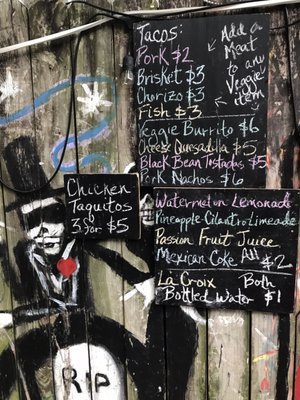 Tacos:
Pork $2
Brisket $3
Chorizo $3
Fish $3
Add a
Meat
to any
Veggie
item
Veggie Burrito $6
Cheese Quesadilla $5
Black Bean Tostadas $5
Pork Nachos $6
Chicken
Taquitos
3 for $5
Watermelon Lemonade
Pineapple-Cilantro Limeade
Passion Fruit Juice
Mexican Coke
All
$2
La Croix
Bottled Water
Both
$1
RIP